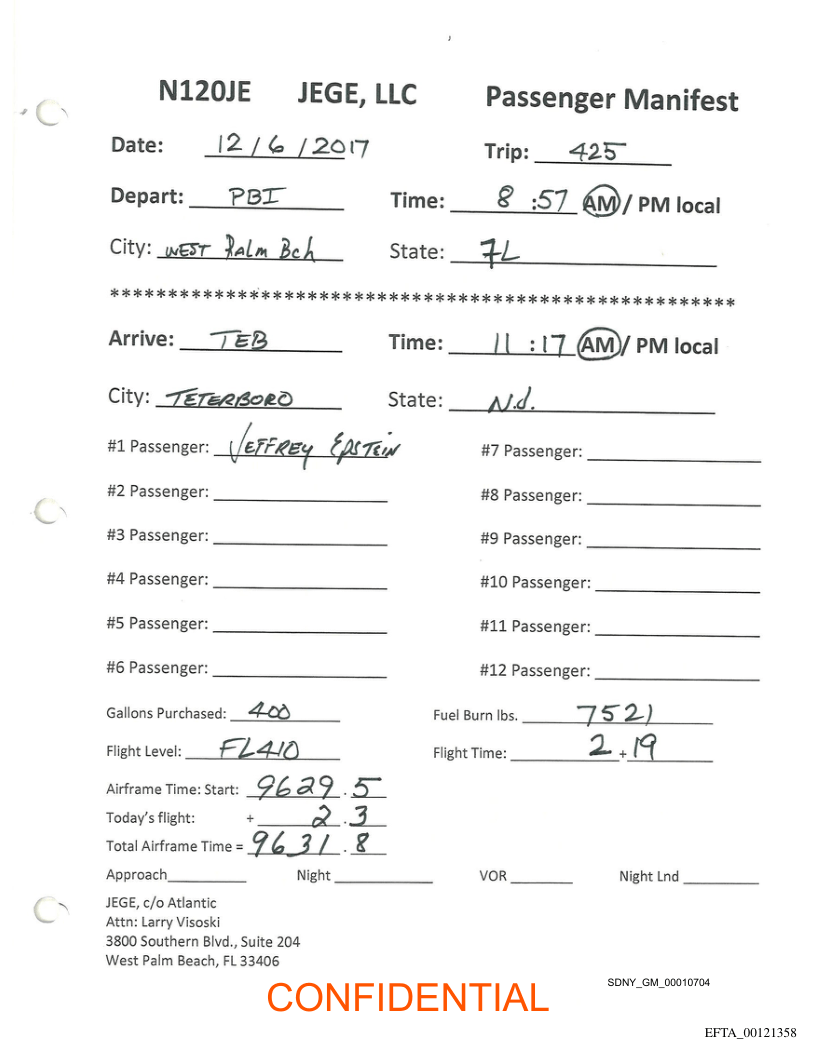 N120JE JEGE, LLC Passenger Manifest
Date: 12 / 6 / 2017 Trip: 425
Depart: PBI Time: 8 :57 AM / PM local
City: WEST Palm Bch State: FL
******************************************************
Arrive: TEB Time: 11 : 17 AM / PM local
City: TETERBORO State: N.J.
#1 Passenger: JEFFREY EPSTEIN #7 Passenger:
#2 Passenger: #8 Passenger:
#3 Passenger: #9 Passenger:
#4 Passenger: #10 Passenger:
#5 Passenger: #11 Passenger:
#6 Passenger: #12 Passenger:
Gallons Purchased: 400 Fuel Burn lbs. 7521
Flight Level: FL410 Flight Time: 2 + 19
Airframe Time: Start: 9629 . 5
Today's flight: + 2 . 3
Total Airframe Time = 9631 . 8
Approach Night VOR Night Lnd
JEGE, c/o Atlantic
Attn: Larry Visoski
3800 Southern Blvd., Suite 204
West Palm Beach, FL 33406
SDNY_GM_00010704
CONFIDENTIAL
EFTA_00121358